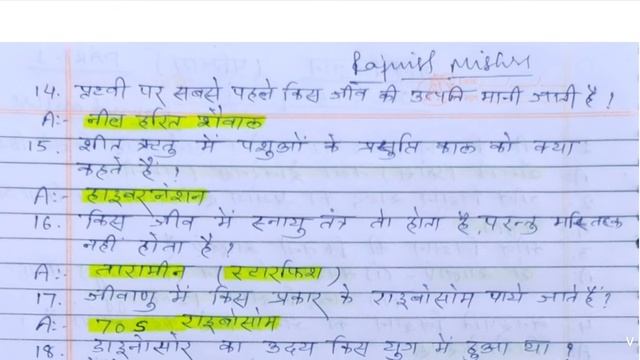 Rajnish Mishra
14. पृथ्वी पर सबसे पहले किस जीव की उत्पति मानी जाती है ?
A:- नील हरित शैवाल
15. शीत ऋतु में पशुओं के प्रसुप्ति काल को क्या
कहते हैं ?
A:- हाइबरनेशन
16. किस जीव में स्नायु तंत्र तो होता है, परन्तु मस्तिष्क
नहीं होता है ?
A:- तारामीन (स्टारफिश)
17. जीवाणु में किस प्रकार के राइबोसोम पाये जाते हैं ?
A:- 70S राइबोसोम
18. डाइनोसोर का उदय किस युग में हुआ था ?